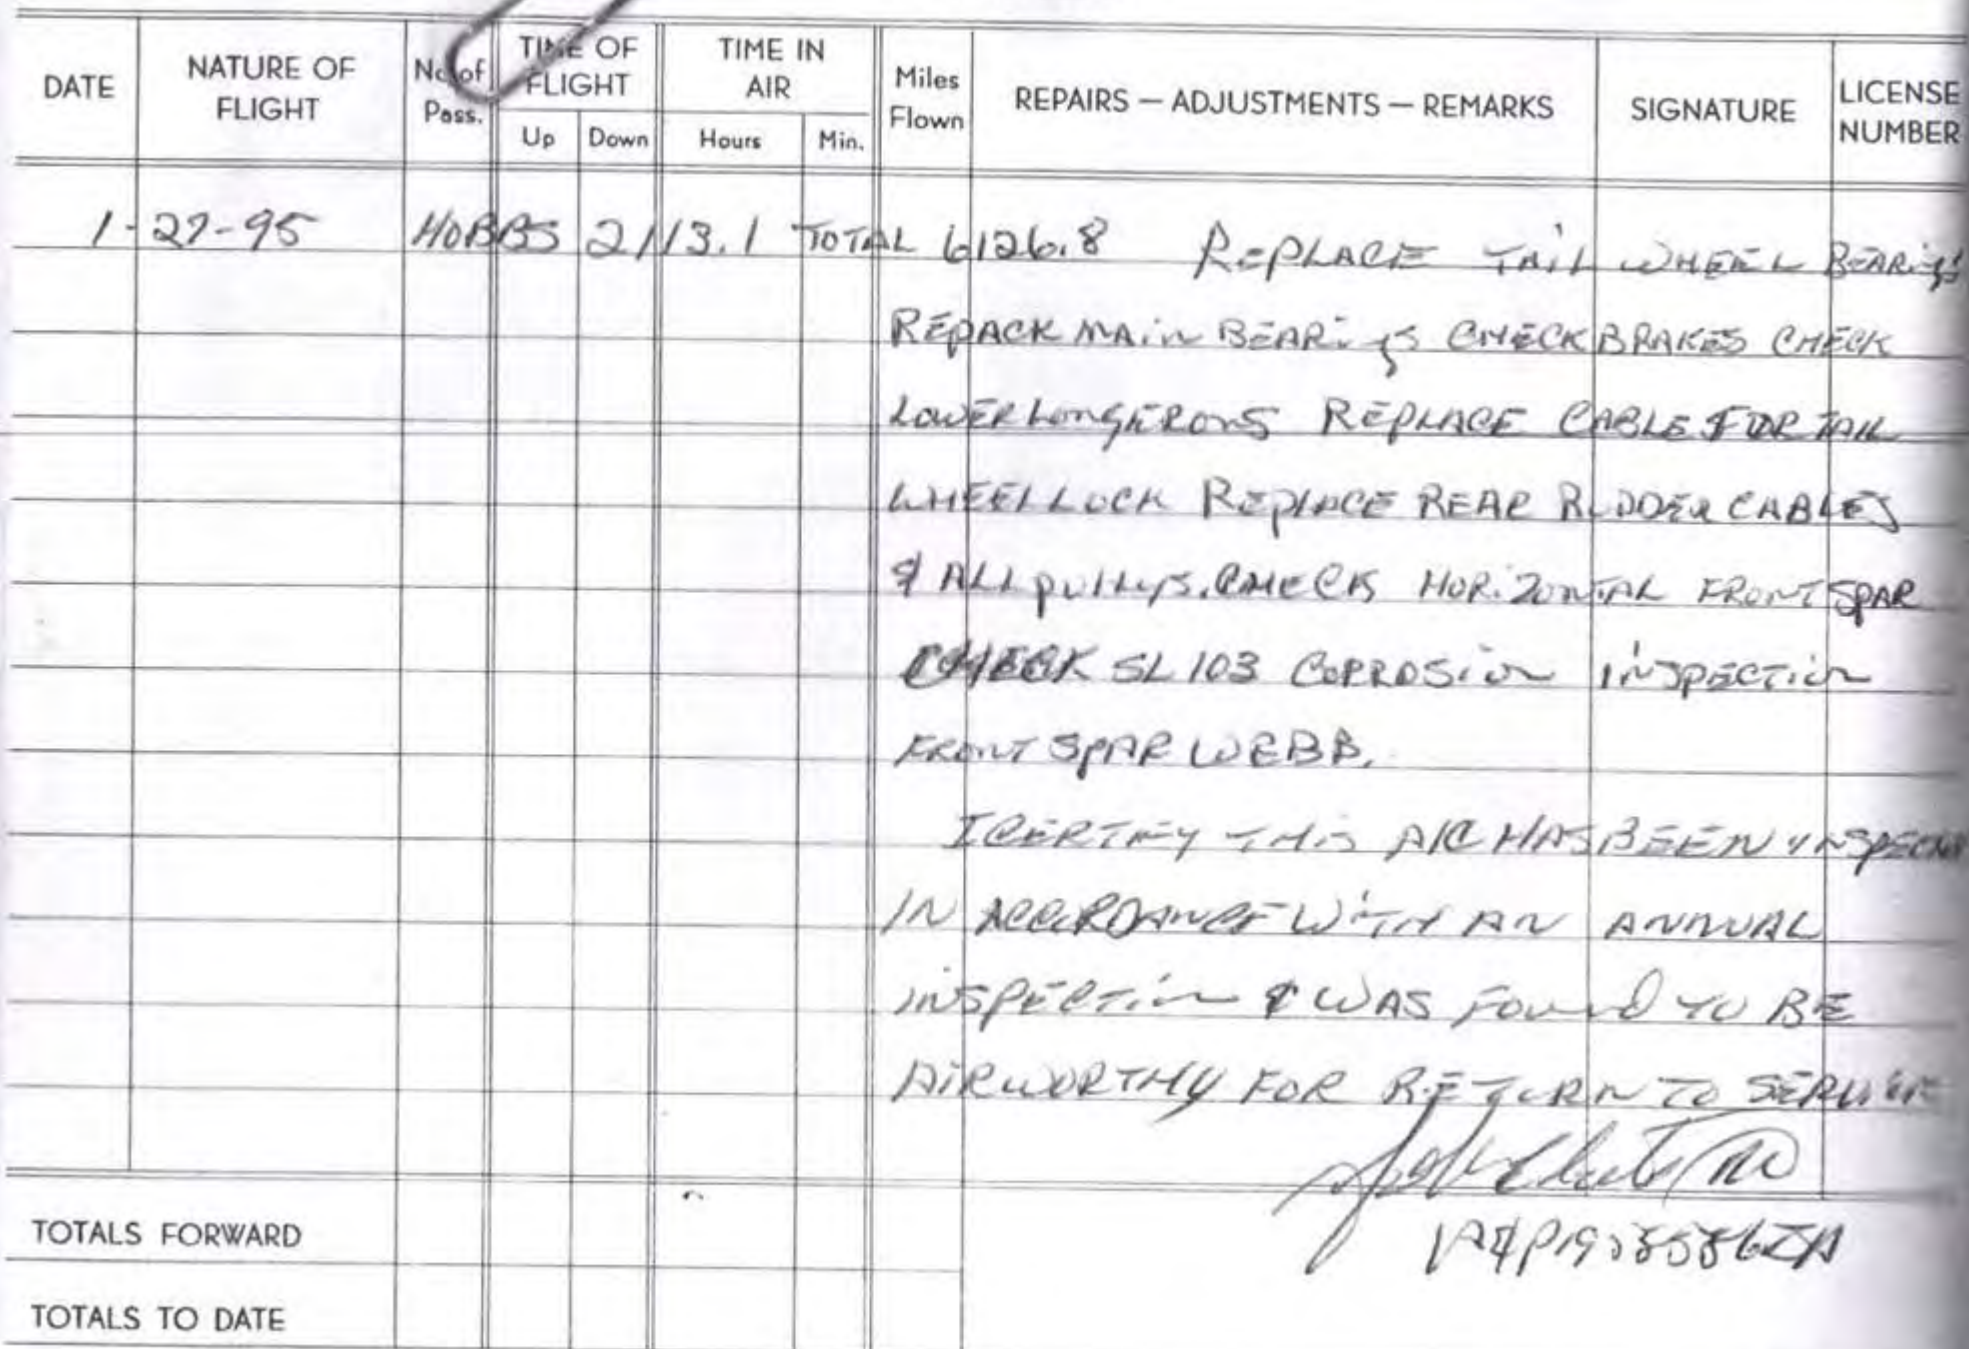 DATE NATURE OF FLIGHT No. of Pass. TIME OF FLIGHT Up Down TIME IN AIR Hours Min. Miles Flown REPAIRS — ADJUSTMENTS — REMARKS SIGNATURE LICENSE NUMBER
1-27-95 HOBBS 2113.1 TOTAL 6126.8 REPLACE TAIL WHEEL BEARINGS
REPACK MAIN BEARINGS CHECK BRAKES CHECK
LOWER LONGERONS REPLACE CABLE FOR TAIL
WHEEL LOCK REPLACE REAR RUDDER CABLES
& ALL pulleys. CHECK HORIZONTAL FRONT SPAR
CHECK SL 103 CORROSION INSPECTION
FRONT SPAR WEBB.
I CERTIFY THIS A/C HAS BEEN INSPECTED
IN ACCORDANCE WITH AN ANNUAL
INSPECTION & WAS FOUND TO BE
AIRWORTHY FOR RETURN TO SERVICE
A&P IA
TOTALS FORWARD
TOTALS TO DATE